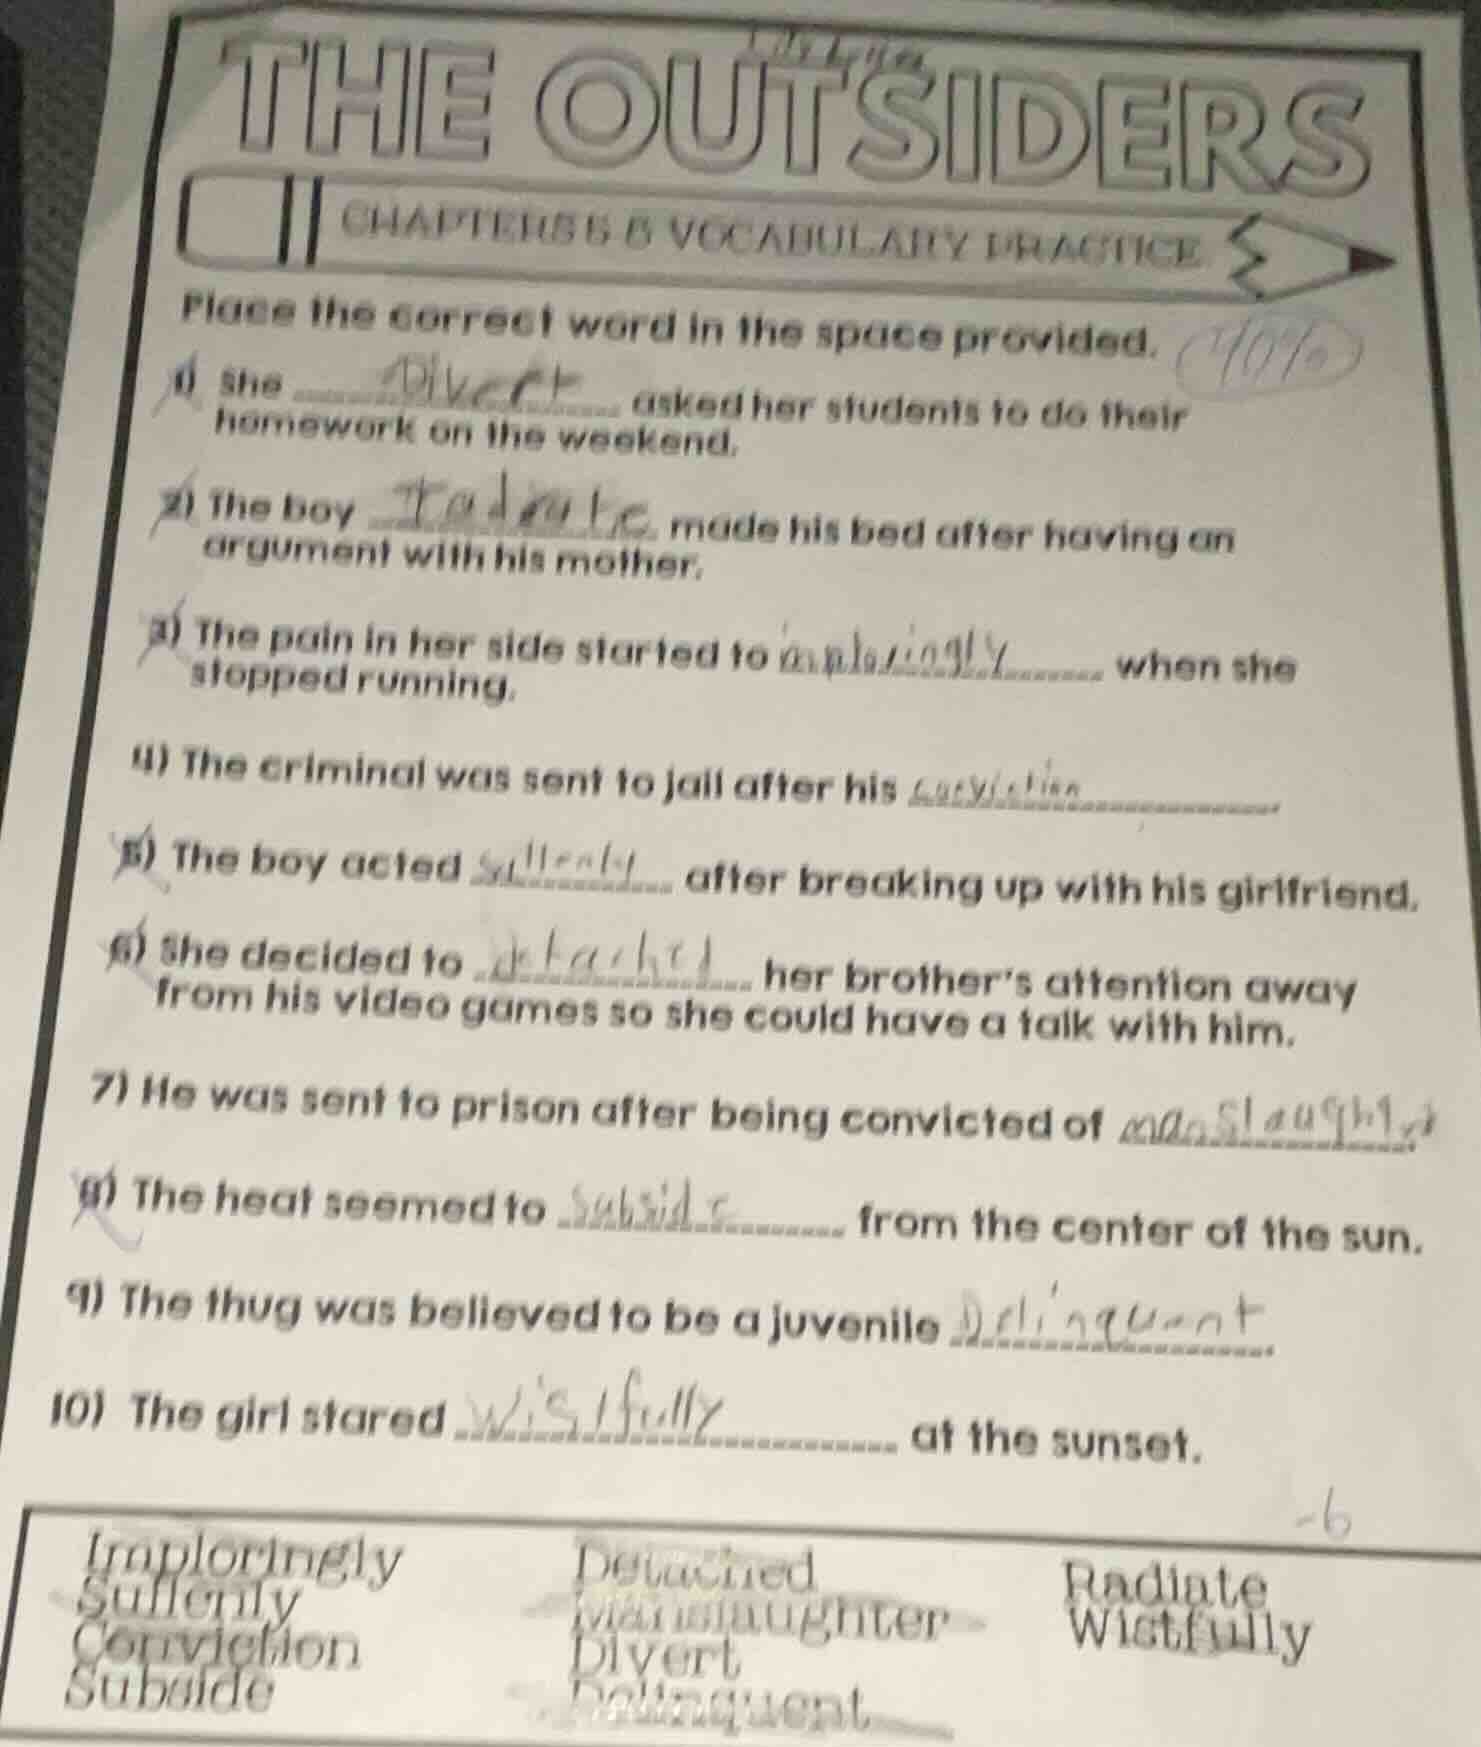 THE OUTSIDERS
CHAPTERS 5 6 VOCABULARY PRACTICE
Place the correct word in the space provided.
40%
1) She Divert asked her students to do their
homework on the weekend.
2) The boy radiate made his bed after having an
argument with his mother.
3) The pain in her side started to imploringly when she
stopped running.
4) The criminal was sent to jail after his conviction
5) The boy acted sullenly after breaking up with his girlfriend.
6) She decided to detached her brother's attention away
from his video games so she could have a talk with him.
7) He was sent to prison after being convicted of manslaughter
8) The heat seemed to subside from the center of the sun.
9) The thug was believed to be a juvenile Delinquent
10) The girl stared wistfully at the sunset.
-6
Imploringly Detached Radiate
Sullenly Manslaughter Wistfully
Conviction Divert
Subside Delinquent